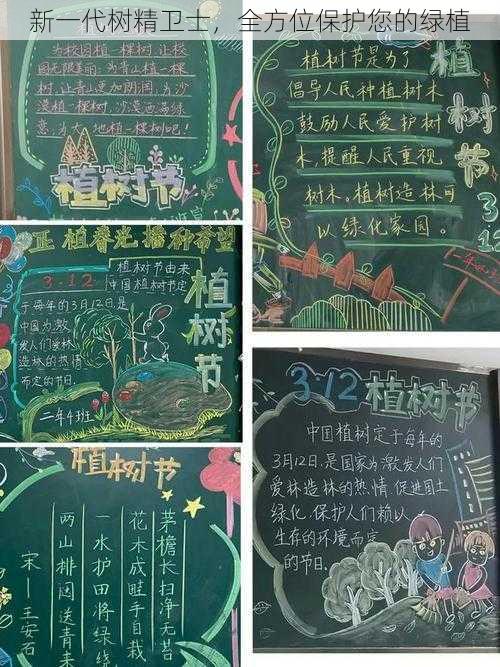 新一代树精卫士，全方位保护您的绿植
为校园植一棵树,让校
园无限美丽;为青山植一棵
树,让青山更加阴润;为沙
漠植一棵树,沙漠洒满绿
意;为大地植一棵树吧!
植树节
植树节是为了
倡导人民种植树木
鼓励人民爱护树
木,提醒人民重视
树木。植树造林可
以绿化家园。
植树节
3.12
正植春光 播种希望
3.12
植树节由来
中国植树节定
于每年的3月12日是
中国为激
发人们爱林
造林的热情
而定的节日.
植树节
二年4班
3·12植树节
中国植树定于每年的
3月12日.是国家为激发人们
爱林造林的热情 促进国土
绿化,保护人们赖以
生存的环境而定
的节日.
植树节
茅檐长扫净无苔
花木成畦手自栽
一水护田将绿绕
两山排闼送青来
宋一王安石